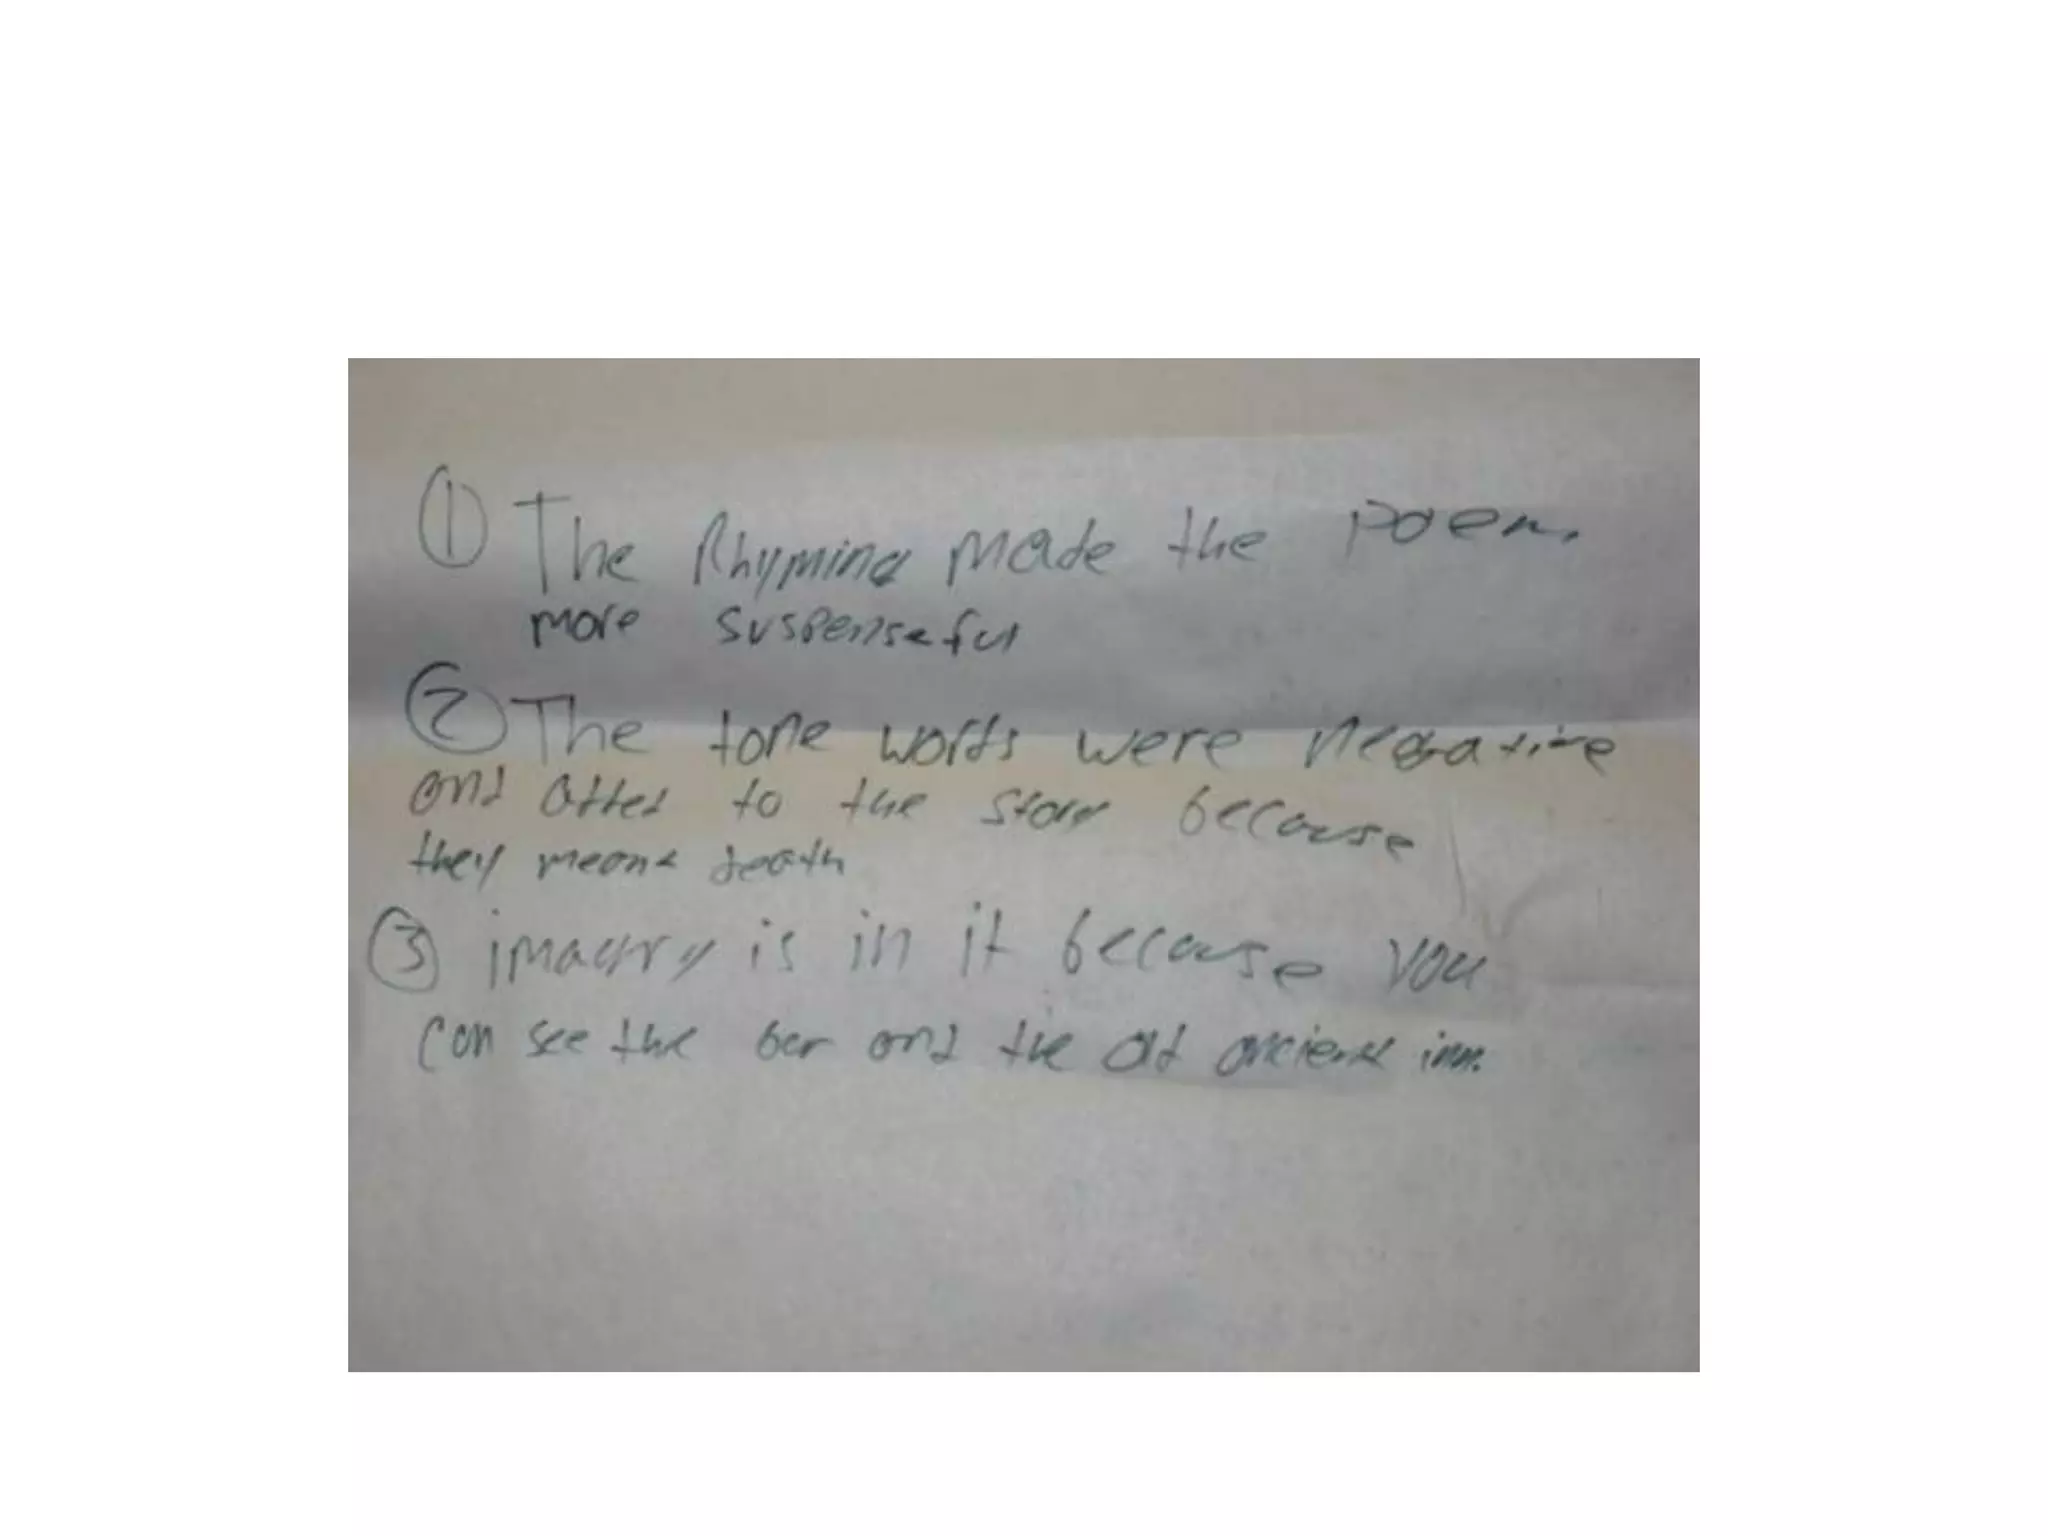 ① The Rhyming made the poem
more suspenseful
② The tone words were negative
and added to the story because
they meant death
③ imagry is in it because you
can see the bar and the old ancient inn.